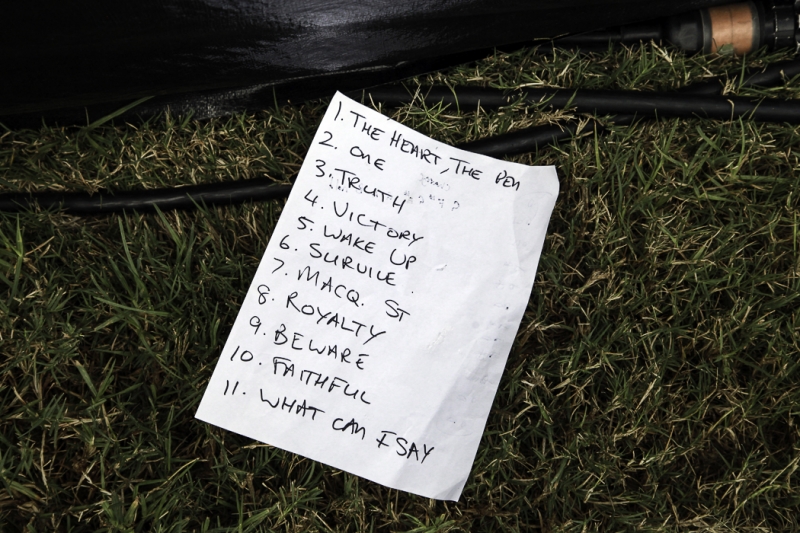 1. THE HEART, THE PEN
2. ONE
3. TRUTH
4. VICTORY
5. WAKE UP
6. SURVIVE
7. MACQ. ST
8. ROYALTY
9. BEWARE
10. FAITHFUL
11. WHAT CAN I SAY